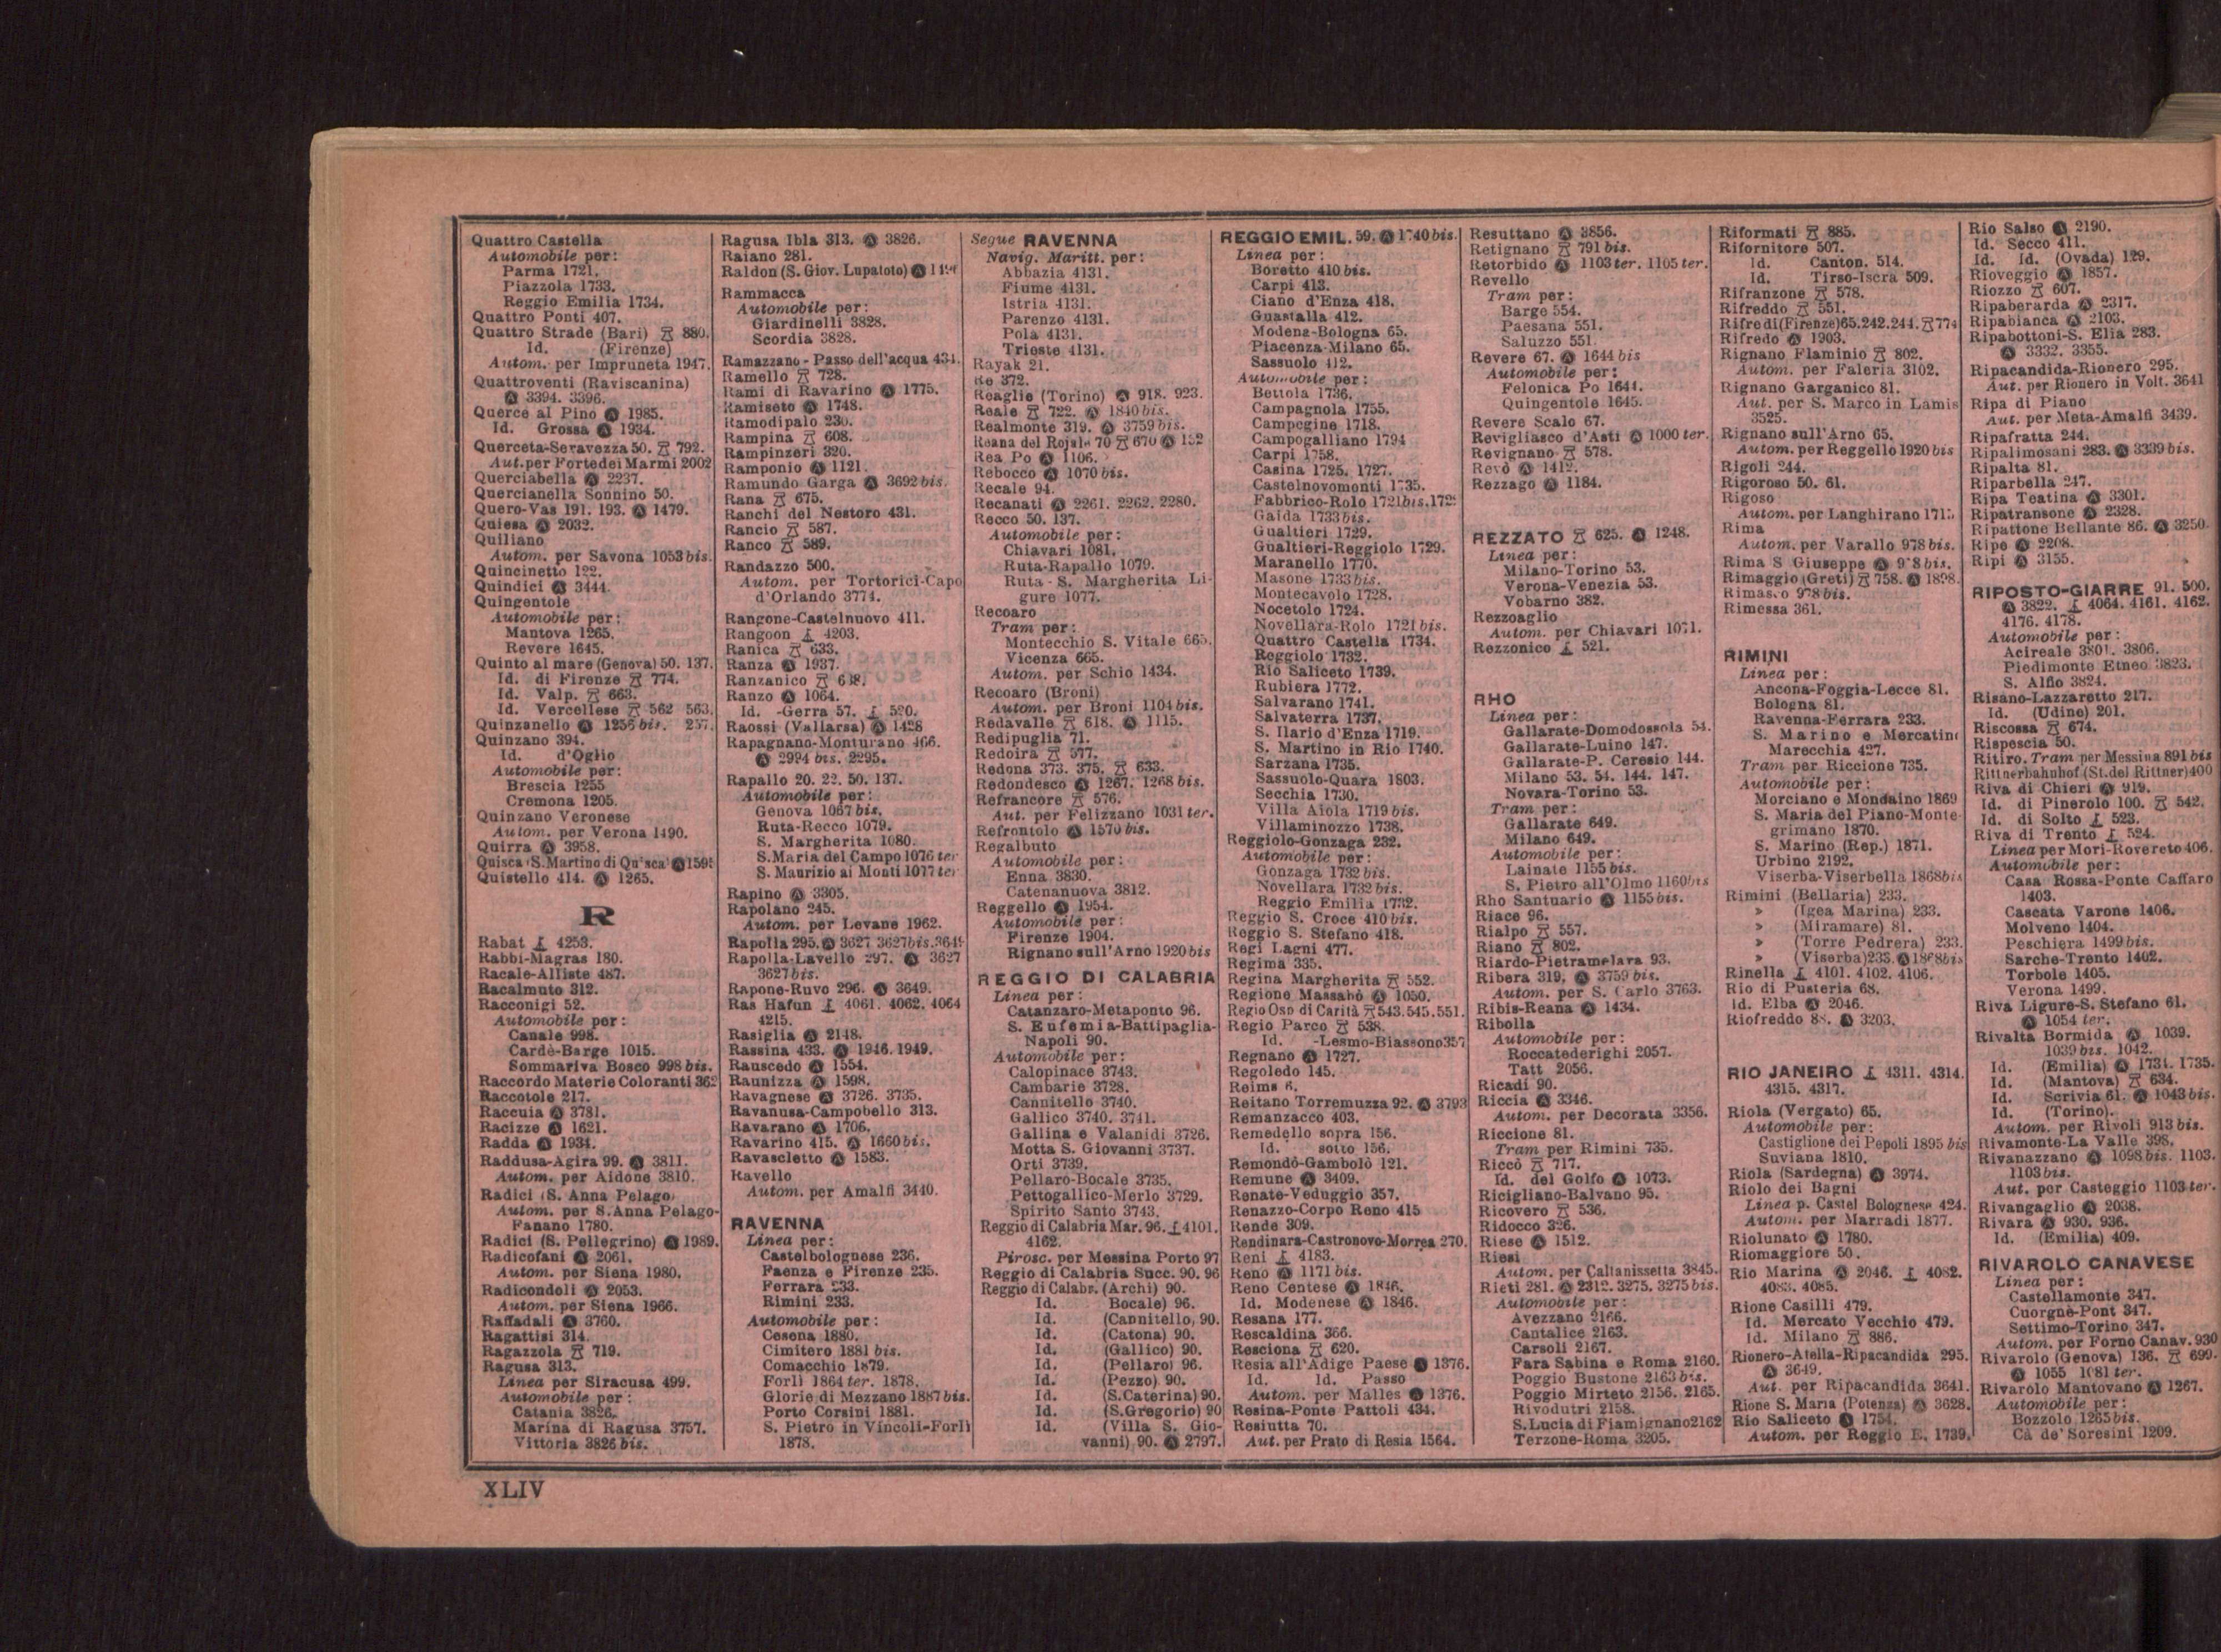 Quattro Castella
Automobile per:
Parma 1721.
Piazzola 1733.
Reggio Emilia 1734.
Quattro Ponti 407.
Quattro Strade (Bari) 880.
Id. (Firenze)
Autom. per Impruneta 1947.
Quattroventi (Raviscanina)
3394. 3396.
Querce al Pino 1985.
Id. Grossa 1934.
Querceta-Seravezza 50. 792.
Aut. per Forte dei Marmi 2002
Querciabella 2237.
Quercianella Sonnino 50.
Quero-Vas 191. 193. 1479.
Quiesa 2032.
Quiliano
Autom. per Savona 1053 bis.
Quincinetto 122.
Quindici 3444.
Quingentole
Automobile per:
Mantova 1265.
Revere 1645.
Quinto al mare (Genova) 50. 137.
Id. di Firenze 774.
Id. Valp. 663.
Id. Vercellese 562 563.
Quinzanello 1256 bis. 257.
Quinzano 394.
Id. d'Oglio
Automobile per:
Brescia 1255
Cremona 1205.
Quinzano Veronese
Autom. per Verona 1490.
Quirra 3958.
Quisca (S. Martino di Quisca)
Quistello 414. 1265.
R
Rabat 4253.
Rabbi-Magras 180.
Racale-Alliste 487.
Racalmuto 312.
Racconigi 52.
Automobile per:
Canale 998.
Cardè-Barge 1015.
Sommariva Bosco 998 bis.
Raccordo Materie Coloranti 362
Raccotole 217.
Raccuia 3781.
Racizze 1621.
Radda 1934.
Raddusa-Agira 99. 3811.
Autom. per Aidone 3810.
Radici (S. Anna Pelago)
Autom. per S. Anna Pelago-
Fanano 1780.
Radici (S. Pellegrino) 1989.
Radicofani 2061.
Autom. per Siena 1980.
Radicondoli 2053.
Autom. per Siena 1966.
Raffadali 3760.
Ragattisi 314.
Ragazzola 719.
Ragusa 313.
Linea per Siracusa 499.
Automobile per:
Catania 3826.
Marina di Ragusa 3757.
Vittoria 3826 bis.
Ragusa Ibla 313. 3826.
Raiano 281.
Raldon (S. Giov. Lupatoto)
Rammacca
Automobile per:
Giardinelli 3828.
Scordia 3828.
Ramazzano-Passo dell'acqua 434.
Ramello 728.
Rami di Ravarino 1775.
Ramiseto 1748.
Ramodipalo 230.
Rampina 608.
Rampinzeri 320.
Ramponio 1121.
Ramundo Garga 3692 bis.
Rana 675.
Ranchi del Nestoro 431.
Rancio 587.
Ranco 589.
Randazzo 500.
Autom. per Tortorici-Capo
d'Orlando 3774.
Rangone-Castelnuovo 411.
Rangoon 4203.
Ranica 633.
Ranza 1937.
Ranzanico
Ranzo 1064.
Id. -Gerra 57. 520.
Raossi (Vallarsa) 1428
Rapagnano-Monturano 466.
2294 bis. 2295.
Rapallo 20. 22. 50. 137.
Automobile per:
Genova 1067 bis.
Ruta-Recco 1079.
S. Margherita 1080.
S. Maria del Campo 1076 ter
S. Maurizio ai Monti 1077 ter
Rapino 3305.
Rapolano 245.
Autom. per Levane 1962.
Rapolla 295. 3627 3627 bis. 3649
Rapolla-Lavello 297. 3627
3627 bis.
Rapone-Ruvo 296. 3649.
Ras Hafun 4061. 4062. 4064
4215.
Rasiglia 2148.
Rassina 433. 1946. 1949.
Rauscedo 1554.
Raunizza 1598.
Ravagnese 3726. 3735.
Ravanusa-Campobello 313.
Ravarano 1706.
Ravarino 415. 1660 bis.
Ravascletto 1583.
Ravello
Autom. per Amalfi 3440.
RAVENNA
Linea per:
Castelbolognese 236.
Faenza e Firenze 235.
Ferrara 233.
Rimini 233.
Automobile per:
Cesena 1880.
Cimitero 1881 bis.
Comacchio 1879.
Forlì 1864 ter. 1878.
Glorie di Mezzano 1887 bis.
Porto Corsini 1881.
S. Pietro in Vincoli-Forlì
1878.
Segue RAVENNA
Navig. Maritt. per:
Abbazia 4131.
Fiume 4131.
Istria 4131.
Parenzo 4131.
Pola 4131.
Trieste 4131.
Rayak 21.
Re 372.
Reaglie (Torino) 918. 923.
Reale 722. 1840 bis.
Realmonte 319. 3759 bis.
Reana del Rojale 70 670
Rea Po 1106.
Rebocco 1070 bis.
Recale 94.
Recanati 2261. 2262. 2280.
Recco 50. 137.
Automobile per:
Chiavari 1081.
Ruta-Rapallo 1079.
Ruta - S. Margherita Li-
gure 1077.
Recoaro
Tram per:
Montecchio S. Vitale 665.
Vicenza 665.
Autom. per Schio 1434.
Recoaro (Broni)
Autom. per Broni 1104 bis.
Redavalle 618. 1115.
Redipuglia 71.
Redoira 577.
Redona 373. 375. 633.
Redondesco 1267. 1268 bis.
Refrancore 576.
Aut. per Felizzano 1031 ter.
Refrontolo 1570 bis.
Regalbuto
Automobile per:
Enna 3830.
Catenanuova 3812.
Reggello 1954.
Automobile per:
Firenze 1904.
Rignano sull'Arno 1920 bis
REGGIO DI CALABRIA
Linea per:
Catanzaro-Metaponto 96.
S. Eufemia-Battipaglia-
Napoli 90.
Automobile per:
Calopinace 3743.
Cambarie 3728.
Cannitello 3740.
Gallico 3740. 3741.
Gallina e Valanidi 3726.
Motta S. Giovanni 3737.
Orti 3739.
Pellaro-Bocale 3735.
Pettogallico-Merlo 3729.
Spirito Santo 3743.
Reggio di Calabria Mar. 96. 4101.
4162.
Pirosc. per Messina Porto 97
Reggio di Calabria Succ. 90. 96
Reggio di Calabr. (Archi) 90.
Id. Bocale) 96.
Id. (Cannitello, 90.
Id. (Catona) 90.
Id. (Gallico) 90.
Id. (Pellaro) 96.
Id. (Pezzo) 90.
Id. (S. Caterina) 90.
Id. (S. Gregorio) 90
Id. (Villa S. Gio-
vanni) 90. 2797.
REGGIO EMIL. 59. 1740 bis.
Linea per:
Boretto 410 bis.
Carpi 413.
Ciano d'Enza 418.
Guastalla 412.
Modena-Bologna 65.
Piacenza-Milano 65.
Sassuolo 412.
Automobile per:
Bettola 1736.
Campagnola 1755.
Campegine 1718.
Campogalliano 1794
Carpi 1758.
Casina 1725. 1727.
Castelnovomonti 1735.
Fabbrico-Rolo 1721 bis.
Gaida 1733 bis.
Gualtieri 1729.
Gualtieri-Reggiolo 1729.
Maranello 1770.
Masone 1733 bis.
Montecavolo 1728.
Nocetolo 1724.
Novellara-Rolo 1721 bis.
Quattro Castella 1734.
Reggiolo 1732.
Rio Saliceto 1739.
Rubiera 1772.
Salvarano 1741.
Salvaterra 1737.
S. Ilario d'Enza 1719.
S. Martino in Rio 1740.
Sarzana 1735.
Sassuolo-Quara 1803.
Secchia 1730.
Villa Aiola 1719 bis.
Villaminozzo 1738.
Reggiolo-Gonzaga 232.
Automobile per:
Gonzaga 1732 bis.
Novellara 1732 bis.
Reggio Emilia 1732.
Reggio S. Croce 410 bis.
Reggio S. Stefano 418.
Regi Lagni 477.
Regima 335.
Regina Margherita 552.
Regione Massabò 1050.
Regio Osp di Carità 543. 545. 551.
Regio Parco 538.
Id. -Lesmo-Biassono 357
Regnano 1727.
Regoledo 145.
Reims 6.
Reitano Torremuzza 92. 3793
Remanzacco 403.
Remedello sopra 156.
Id. sotto 156.
Remondò-Gambolò 121.
Remune 3409.
Renate-Veduggio 357.
Renazzo-Corpo Reno 415
Rende 309.
Rendinara-Castronovo-Morrea 270.
Reni 4183.
Reno 1171 bis.
Reno Centese 1846.
Id. Modenese 1846.
Resana 177.
Rescaldina 366.
Resciona 620.
Resia all'Adige Paese 1376.
Id. Id. Passo
Autom. per Malles 1376.
Resina-Ponte Pattoli 434.
Resiutta 70.
Aut. per Prato di Resia 1564.
Resuttano 3856.
Retignano 791 bis.
Retorbido 1103 ter. 1105 ter.
Revello
Tram per:
Barge 554.
Paesana 551.
Saluzzo 551.
Revere 67. 1644 bis
Automobile per:
Felonica Po 1644.
Quingentole 1645.
Revere Scalo 67.
Revigliasco d'Asti 1000 ter.
Revignano 578.
Revò 1412.
Rezzago 1184.
REZZATO 625. 1248.
Linea per:
Milano-Torino 53.
Verona-Venezia 53.
Vobarno 382.
Rezzoaglio
Autom. per Chiavari 1071.
Rezzonico 521.
RHO
Linea per:
Gallarate-Domodossola 54.
Gallarate-Luino 147.
Gallarate-P. Ceresio 144.
Milano 53. 54. 144. 147.
Novara-Torino 53.
Tram per:
Gallarate 649.
Milano 649.
Automobile per:
Lainate 1155 bis.
S. Pietro all'Olmo 1160 bis
Rho Santuario 1155 bis.
Riace 96.
Rialpo 557.
Riano 802.
Riardo-Pietramelara 93.
Ribera 319. 3759 bis.
Autom. per S. Carlo 3763.
Ribis-Reana 1434.
Ribolla
Automobile per:
Roccatederighi 2057.
Tatt 2056.
Ricadi 90.
Riccia 3346.
Autom. per Decorata 3356.
Riccione 81.
Tram per Rimini 735.
Riccò 717.
Id. del Golfo 1073.
Ricigliano-Balvano 95.
Ricovero 536.
Ridocco 326.
Riese 1512.
Riesi
Autom. per Caltanissetta 3845.
Rieti 281. 2312. 3275. 3275 bis.
Automobile per:
Avezzano 2166.
Cantalice 2163.
Carsoli 2167.
Fara Sabina e Roma 2160.
Poggio Bustone 2163 bis.
Poggio Mirteto 2156. 2165.
Rivodutri 2158.
S. Lucia di Fiamignano 2162
Terzone-Roma 3205.
Riformati 885.
Rifornitore 507.
Id. Canton. 514.
Id. Tirso-Iscra 509.
Rifranzone 578.
Rifreddo 551.
Rifredi (Firenze) 65. 242. 244. 774
Rifredo 1903.
Rignano Flaminio 802.
Autom. per Faleria 3102.
Rignano Garganico 81.
Aut. per S. Marco in Lamis
3525.
Rignano sull'Arno 65.
Autom. per Reggello 1920 bis
Rigoli 244.
Rigoroso 50. 61.
Rigoso
Autom. per Langhirano
Rima
Autom. per Varallo 978 bis.
Rima S Giuseppe 978 bis.
Rimaggio (Greti) 758. 1898.
Rimasco 978 bis.
Rimessa 361.
RIMINI
Linea per:
Ancona-Foggia-Lecce 81.
Bologna 81.
Ravenna-Ferrara 233.
S. Marino e Mercatino
Marecchia 427.
Tram per Riccione 735.
Automobile per:
Morciano e Mondaino 1869
S. Maria del Piano-Monte-
grimano 1870.
S. Marino (Rep.) 1871.
Urbino 2192.
Viserba-Viserbella 1868 bis
Rimini (Bellaria) 233.
» (Igea Marina) 233.
» (Miramare) 81.
» (Torre Pedrera) 233.
» (Viserba) 233. 1868 bis
Rinella 4101. 4102. 4106.
Rio di Pusteria 68.
Id. Elba 2046.
Riofreddo 88. 3203.
RIO JANEIRO 4311. 4314.
4315. 4317.
Riola (Vergato) 65.
Automobile per:
Castiglione dei Pepoli 1895 bis
Suviana 1810.
Riola (Sardegna) 3974.
Riolo dei Bagni
Linea p. Castel Bolognese 424.
Autom. per Marradi 1877.
Riolunato 1780.
Riomaggiore 50.
Rio Marina 2046. 4082.
4083. 4085.
Rione Casilli 479.
Id. Mercato Vecchio 479.
Id. Milano 886.
Rionero-Atella-Ripacandida 295.
3649.
Aut. per Ripacandida 3641.
Rione S. Maria (Potenza) 3628.
Rio Saliceto 1754.
Autom. per Reggio E. 1739.
Rio Salso 2190.
Id. Secco 411.
Id. Id. (Ovada) 129.
Rioveggio 1857.
Riozzo 607.
Ripaberarda 2317.
Ripabianca 2103.
Ripabottoni-S. Elia 283.
3332. 3355.
Ripacandida-Rionero 295.
Aut. per Rionero in Volt. 3641
Ripa di Piano
Aut. per Meta-Amalfi 3439.
Ripafratta 244.
Ripalimosani 283. 3339 bis.
Ripalta 81.
Riparbella 247.
Ripa Teatina 3301.
Ripatransone 2328.
Ripattone Bellante 86. 3250.
Ripe 2208.
Ripi 3155.
RIPOSTO-GIARRE 91. 500.
3822. 4064. 4161. 4162.
4176. 4178.
Automobile per:
Acireale 3801. 3806.
Piedimonte Etneo 3823.
S. Alfio 3824.
Risano-Lazzaretto 217.
Id. (Udine) 201.
Riscossa 674.
Rispescia 50.
Ritiro. Tram per Messina 891 bis
Rittnerbahnhof (St. del Rittner) 400
Riva di Chieri 919.
Id. di Pinerolo 100. 542.
Id. di Solto 523.
Riva di Trento 524.
Linea per Mori-Rovereto 406.
Automobile per:
Casa Rossa-Ponte Caffaro
1403.
Cascata Varone 1406.
Molveno 1404.
Peschiera 1499 bis.
Sarche-Trento 1402.
Torbole 1405.
Verona 1499.
Riva Ligure-S. Stefano 61.
1054 ter.
Rivalta Bormida 1039.
1039 bis. 1042.
Id. (Emilia) 1734. 1735.
Id. (Mantova) 634.
Id. Scrivia 61. 1043 bis.
Id. (Torino).
Autom. per Rivoli 913 bis.
Rivamonte-La Valle 398.
Rivanazzano 1098 bis. 1103.
1103 bis.
Aut. per Casteggio 1103 ter.
Rivangaglio 2038.
Rivara 930. 936.
Id. (Emilia) 409.
RIVAROLO CANAVESE
Linea per:
Castellamonte 347.
Cuorgnè-Pont 347.
Settimo-Torino 347.
Autom. per Forno Canav. 930
Rivarolo (Genova) 136. 699.
1055 1081 ter.
Rivarolo Mantovano 1267.
Automobile per:
Bozzolo 1265 bis.
Cà de' Soresini 1209.
XLIV